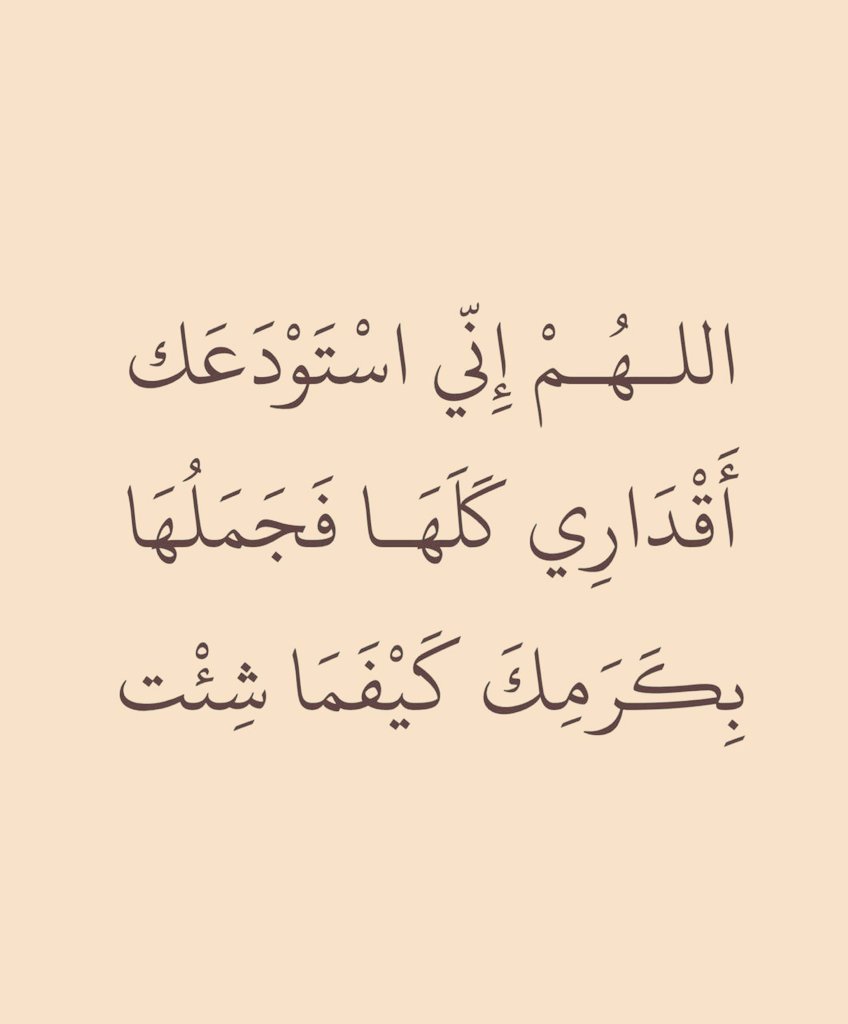 اللـهُـمْ إِنّي اسْتَوْدَعَك
أَقْدَارِي كَلَهَـا فَجَمَلُهَا
بِكَرَمِكَ كَيْفَمَا شِئْت